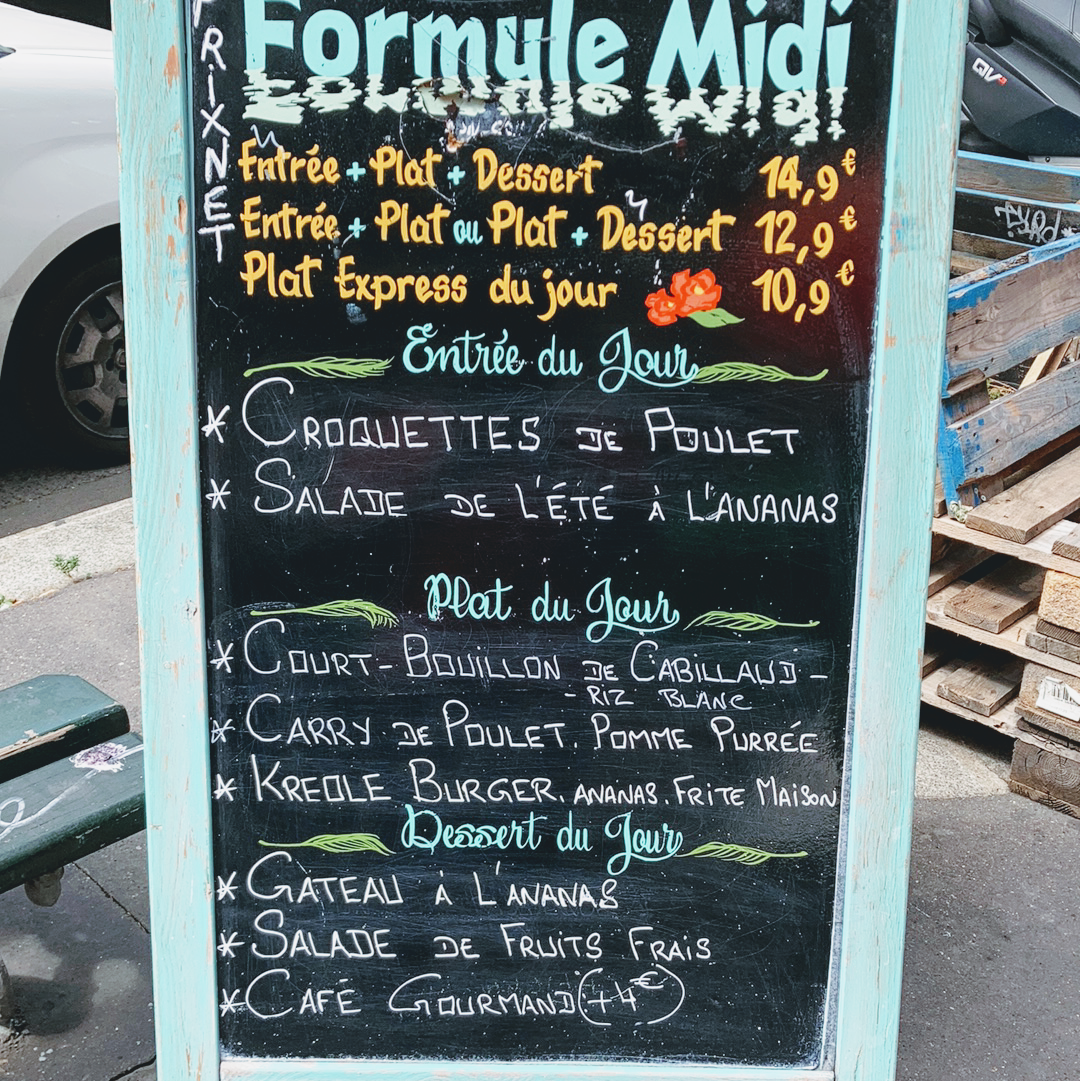 Formule Midi
TRIXNET
Entrée + Plat + Dessert 14,9€
Entrée + Plat ou Plat + Dessert 12,9€
Plat Express du jour 10,9€
Entrée du Jour
* CROQUETTES DE POULET
* SALADE DE L'ÉTÉ À L'ANANAS
Plat du Jour
* COURT-BOUILLON DE CABILLAUD-
-RIZ BLANC
* CARRY DE POULET. POMME PURRÉE
* KREOLE BURGER. ANANAS. FRITE MAISON
Dessert du Jour
* GÂTEAU À L'ANANAS
* SALADE DE FRUITS FRAIS
* CAFÉ GOURMAND (+4€)
QV3